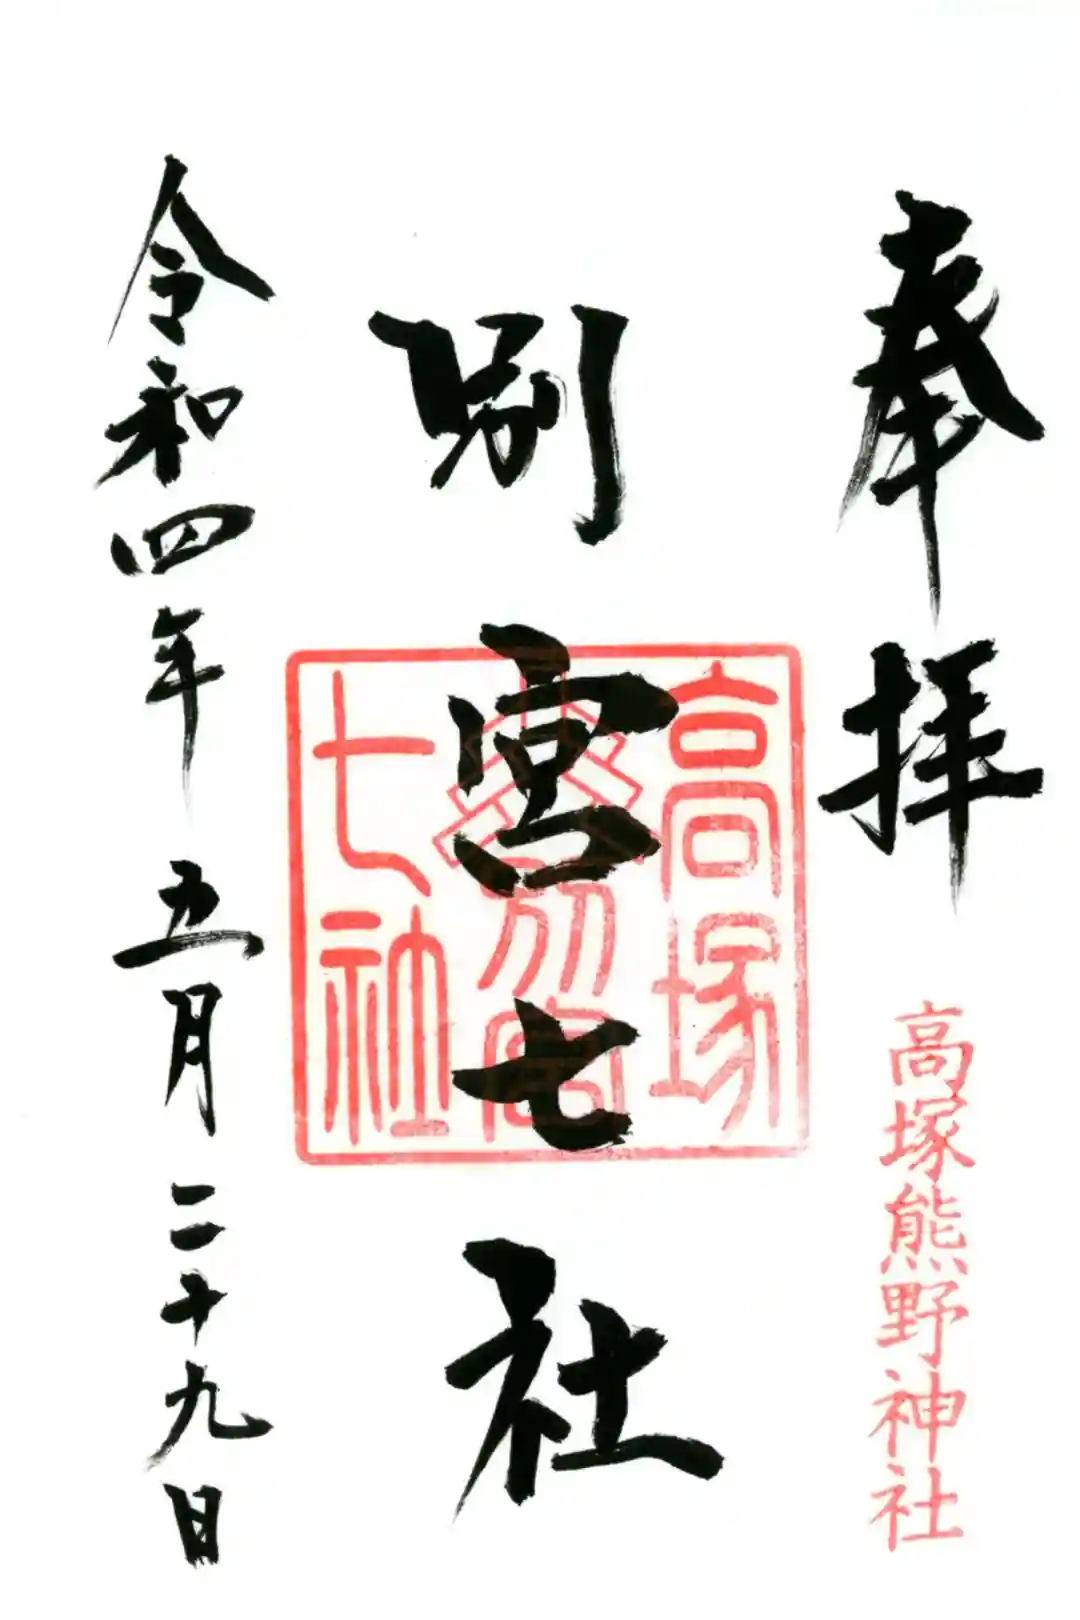 奉拝
高塚熊野神社
別宮七社
高塚
別宮
七社
令和四年五月二十九日